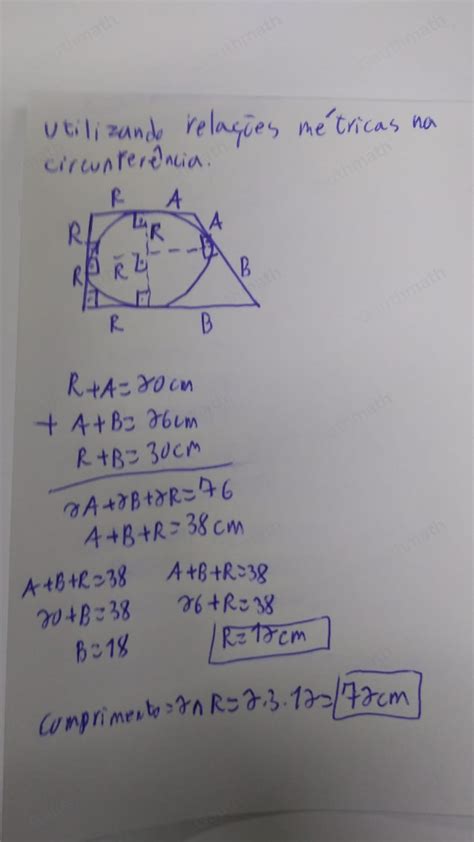 Utilizando relações métricas na
circunferência.
R A
R R A
R R B
R B
R+A=20cm
+ A+B=26cm
R+B=30cm
2A+2B+2R=76
A+B+R=38cm
A+B+R=38 A+B+R=38
20+B=38 26+R=38
B=18 R=12cm
Comprimento=2πR=2.3.12=72cm